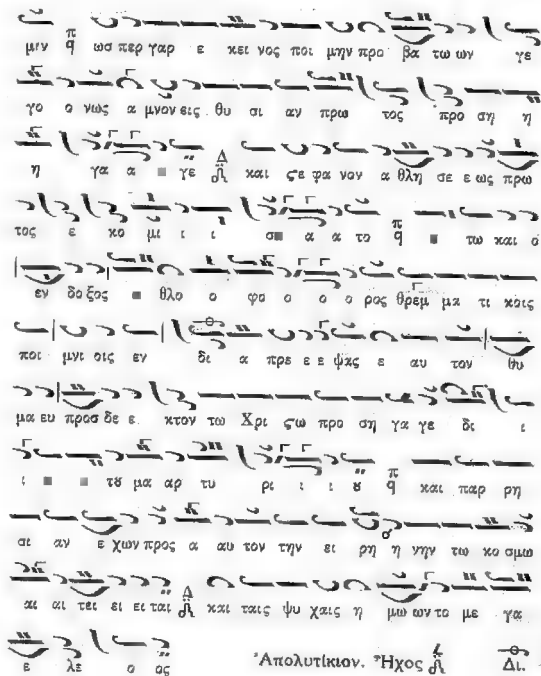 μιν π q ως περ γαρ ε κει νος ποι μην προ βα τω ων γε
γο ο νως α μνον εις θυ σι αν πρω τος προ ση η
η γα α γε Δ και ςε φα νον α θλη σε ε ως πρω
τος ε κο μι ι ι σ α α το π q τω και ο
εν δο ξος θλο ο φο ο ο ο ρος θρεμ μα τι κοις
ποι μνι οις εν δι α πρε ε ε ψας ε αυ τον θυ
μα ευ προσ δε ε κτον τω Χρι ςω προ ση γα γε δι ι
ι του μα αρ τυ ρι ι ι ου π q και παρ ρη
σι αν ε χων προς α αυ τον την ει ρη η νην τω κο σμω
αι αι τει ει ει ται Δ και ταις ψυ χαις η μω ων το με γα
ε λε ο ος
Ἀπολυτίκιον. Ἦχος Δι.